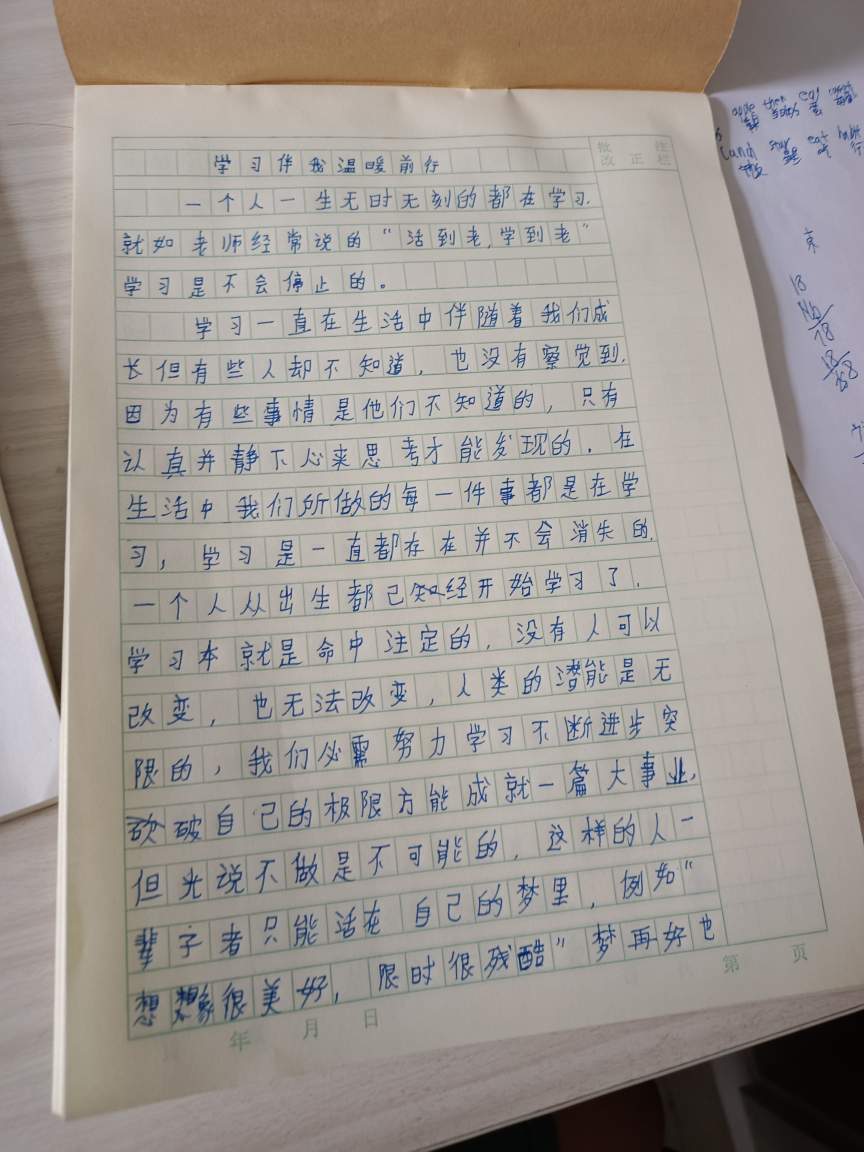 批 注
改 正 栏
学习伴我温暖前行
一个人一生无时无刻的都在学习.
就如老师经常说的“活到老,学到老”
学习是不会停止的。
学习一直在生活中伴随着我们成
长但有些人却不知道，也没有察觉到.
因为有些事情是他们不知道的，只有
认真并静下心来思考才能发现的.在
生活中我们所做的每一件事都是在学
习，学习是一直都存在并不会消失的.
一个人从出生都已知经开始学习了.
学习本就是命中注定的，没有人可以
改变，也无法改变，人类的潜能是无
限的，我们必需努力学习不断进步突
破自己的极限方能成就一篇大事业,
但光说不做是不可能的，这样的人一
辈子者只能活在自己的梦里，例如“
想想象很美好，限时很残酷”梦再好也
年 月 日
第 页
apple then eat
stay eat habit
京
18